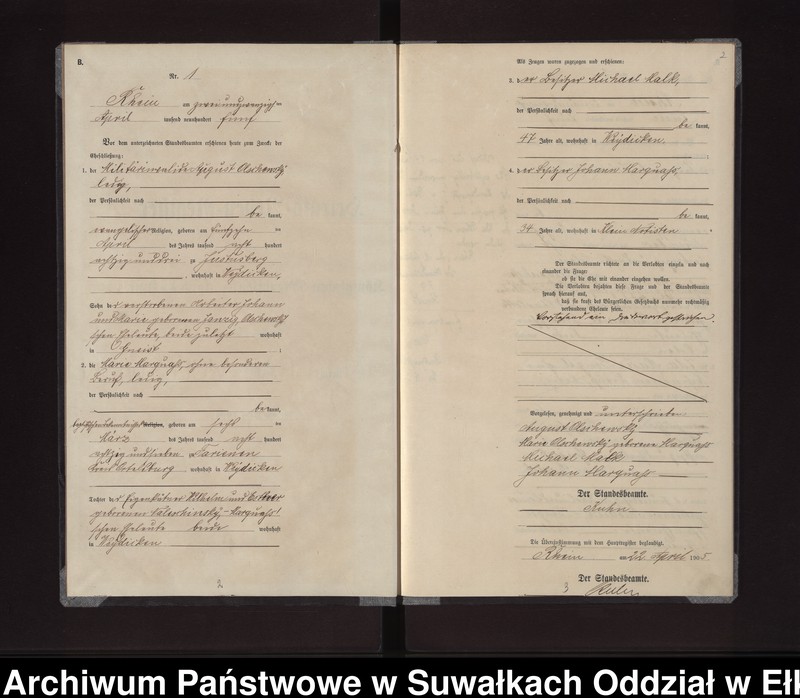 B.
Nr. 1
Rhein am zweiundzwanzigsten
April tausend neunhundert fünf
Vor dem unterzeichneten Standesbeamten erschienen heute zum Zweck der
Eheschließung:
1. der Militärinvalide August Olschewsky
ledig,
der Persönlichkeit nach
be kannt,
evangelischer Religion, geboren am fünfzehn ten
April des Jahres tausend acht hundert
achtzig und drei zu Justusberg
, wohnhaft in Weydicken,
Sohn der verstorbenen Arbeiter Johann
und Marie geborenen Olschewsky
schen Eheleute, beide zuletzt wohnhaft
in Gneist ;
2. die Marie Marquaß, ohne besonderen
Beruf, ledig,
der Persönlichkeit nach
be kannt,
Religion, geboren am sechs ten
März des Jahres tausend acht hundert
achtzig und sieben zu
Kreis Ortelsburg wohnhaft in Weydicken
Tochter der Eigenkätner Wilhelm und Esther
geborenen Marquaß'
schen Eheleute beide wohnhaft
in Weydicken
2
2
Als Zeugen waren zugezogen und erschienen:
3. der Besitzer Michael Malk,
der Persönlichkeit nach
be kannt,
47 Jahre alt, wohnhaft in Weydicken,
4. der Besitzer Johann Marquaß,
der Persönlichkeit nach
be kannt,
34 Jahre alt, wohnhaft in Klein Notisten
Der Standesbeamte richtete an die Verlobten einzeln und nach
einander die Frage:
ob sie die Ehe mit einander eingehen wollen.
Die Verlobten bejahten diese Frage und der Standesbeamte
sprach hierauf aus,
daß sie kraft des Bürgerlichen Gesetzbuchs nunmehr rechtmäßig
verbundene Eheleute seien.
Vorstehend ein Druckwort gestrichen.
Vorgelesen, genehmigt und unterschrieben
August Olschewsky
Marie Olschewsky geborene Marquaß
Michael Malk
Johann Marquass
Der Standesbeamte.
Kuhn
Die Übereinstimmung mit dem Hauptregister beglaubigt.
Rhein am 22. April 1905
Der Standesbeamte.
3
Archiwum Państwowe w Suwałkach Oddział w Eł